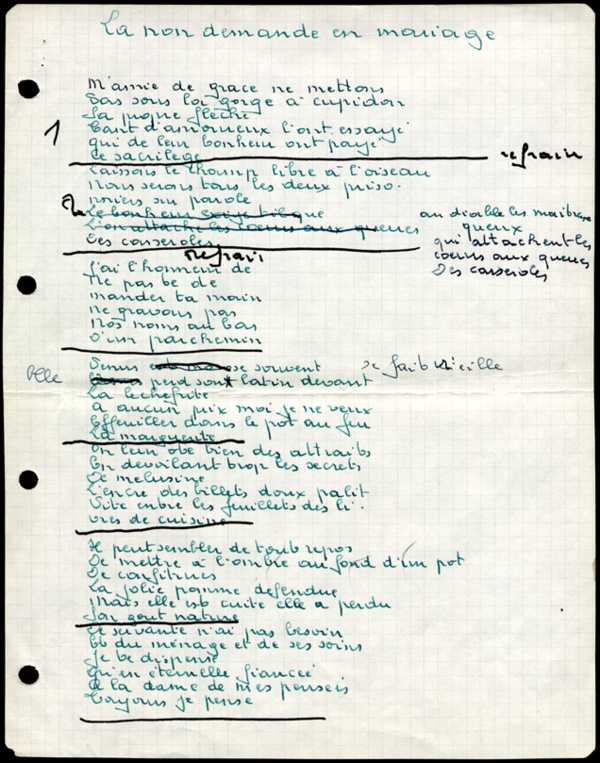 La non demande en mariage
M'amie de grace ne mettons
Pas sous la gorge a cupidon
Sa propre fleche
Tant d'amoureux l'ont essayé
qui de leur bonheur ont payé
1
Ce sacrilege
refrain
Laissons le champ libre à l'oiseau
Nous serons tous les deux priso.
nniers sur parole
2
Le bonheur que
au diable les maitresses
L'on attache les coeurs aux queues
queux
Des casseroles
qui attachent les
coeurs aux queues
Des casseroles
refrain
J'ai l'honneur de
ne pas te de
mander ta main
ne gravons pas
Nos noms au bas
D'un parchemin
Venus se souvent
se fait vieille
Elle perd son latin devant
La lechefrite
a aucun prix moi je ne veux
Effeuiller dans le pot au feu
La marguerite
On leur ote bien des attraits
En devoilant trop les secrets
De melusine
L'encre des billets doux palit
Vite entre les feuillets des li.
vres de cuisine
Il peut sembler de tout repos
De mettre à l'ombre au fond d'un pot
De confitures
La jolie pomme defendue
Mais elle est cuite elle a perdu
Son gout nature
De servante n'ai pas besoin
Et du ménage et de ses soins
Je te dispense
Qu'en éternelle fiancée
A la dame de mes pensées
Toujours je pense